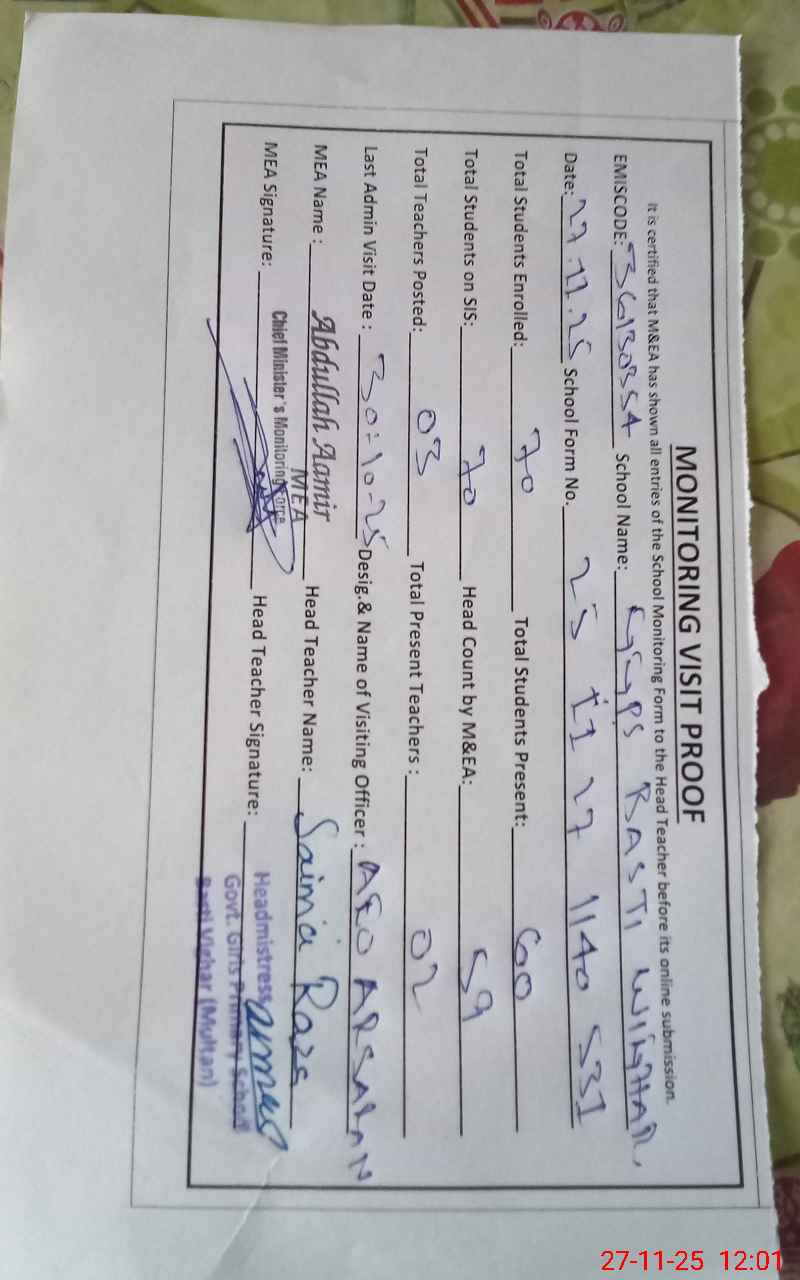 MONITORING VISIT PROOF
It is certified that M&EA has shown all entries of the School Monitoring Form to the Head Teacher before its online submission.
EMISCODE: 36130354 School Name: GGPS BASTI WIGHAR
Date: 27.11.25 School Form No. 25 11 27 1140 531
Total Students Enrolled: 70 Total Students Present: 60
Total Students on SIS: 70 Head Count by M&EA: 59
Total Teachers Posted: 03 Total Present Teachers : 02
Last Admin Visit Date : 30-10-25 Desig.& Name of Visiting Officer : AEO ARSALAN
MEA Name : Abdullah Aamir Head Teacher Name: Saima Raza
MEA
Chief Minister's Monitoring Force
MEA Signature: Head Teacher Signature:
Headmistress
Govt. Girls Primary School
Basti Vighar (Multan)
27-11-25 12:01